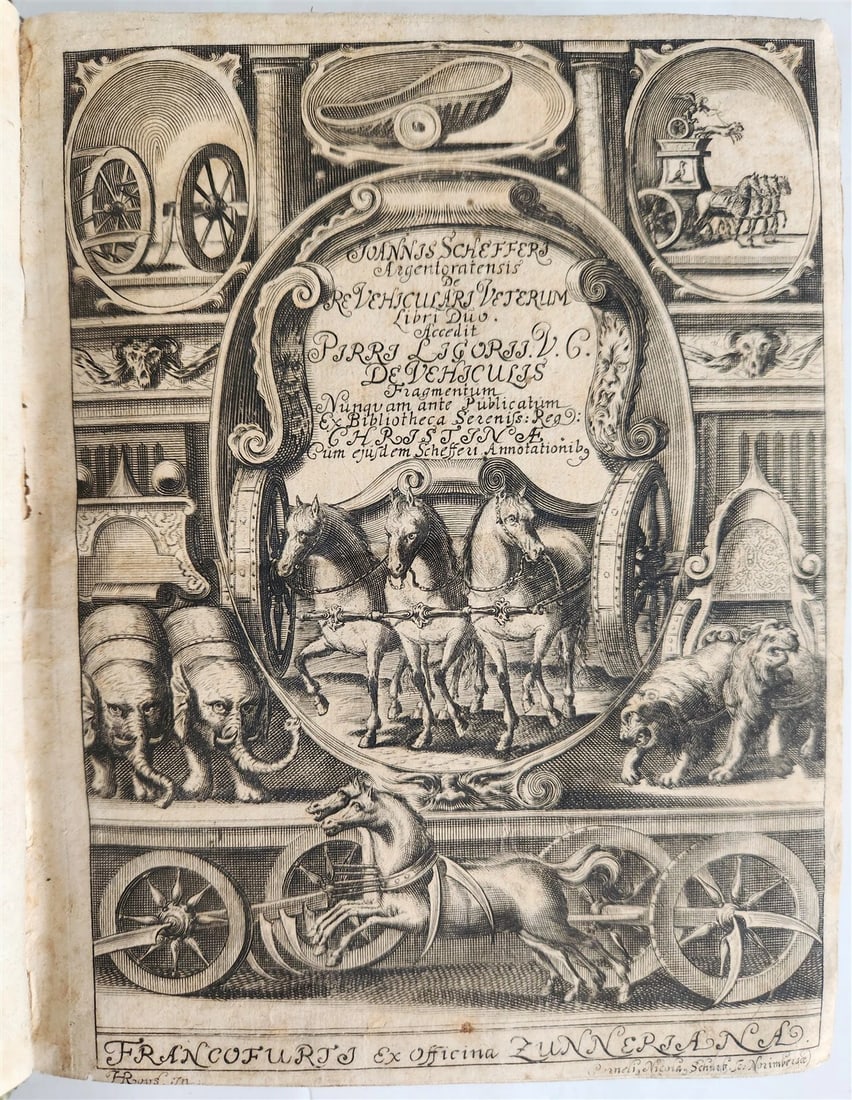 IOANNIS SCHEFFERI
Argentoratensis
De
RE VEHICULARI VETERUM
Libri Duo.
Accedit
PIRRI LIGORII. V. C.
DE VEHICULIS
Fragmentum
Nunqvam ante Publicatum
Ex Bibliotheca Sereniss: Reg:
CHRISTINÆ.
Cum ejusdem Schefferi Annotationib9
FRANCOFURTI Ex Officina ZUNNERIANA.
in.
Corneli, Nicola, Schurtz Sc: Norimbergæ